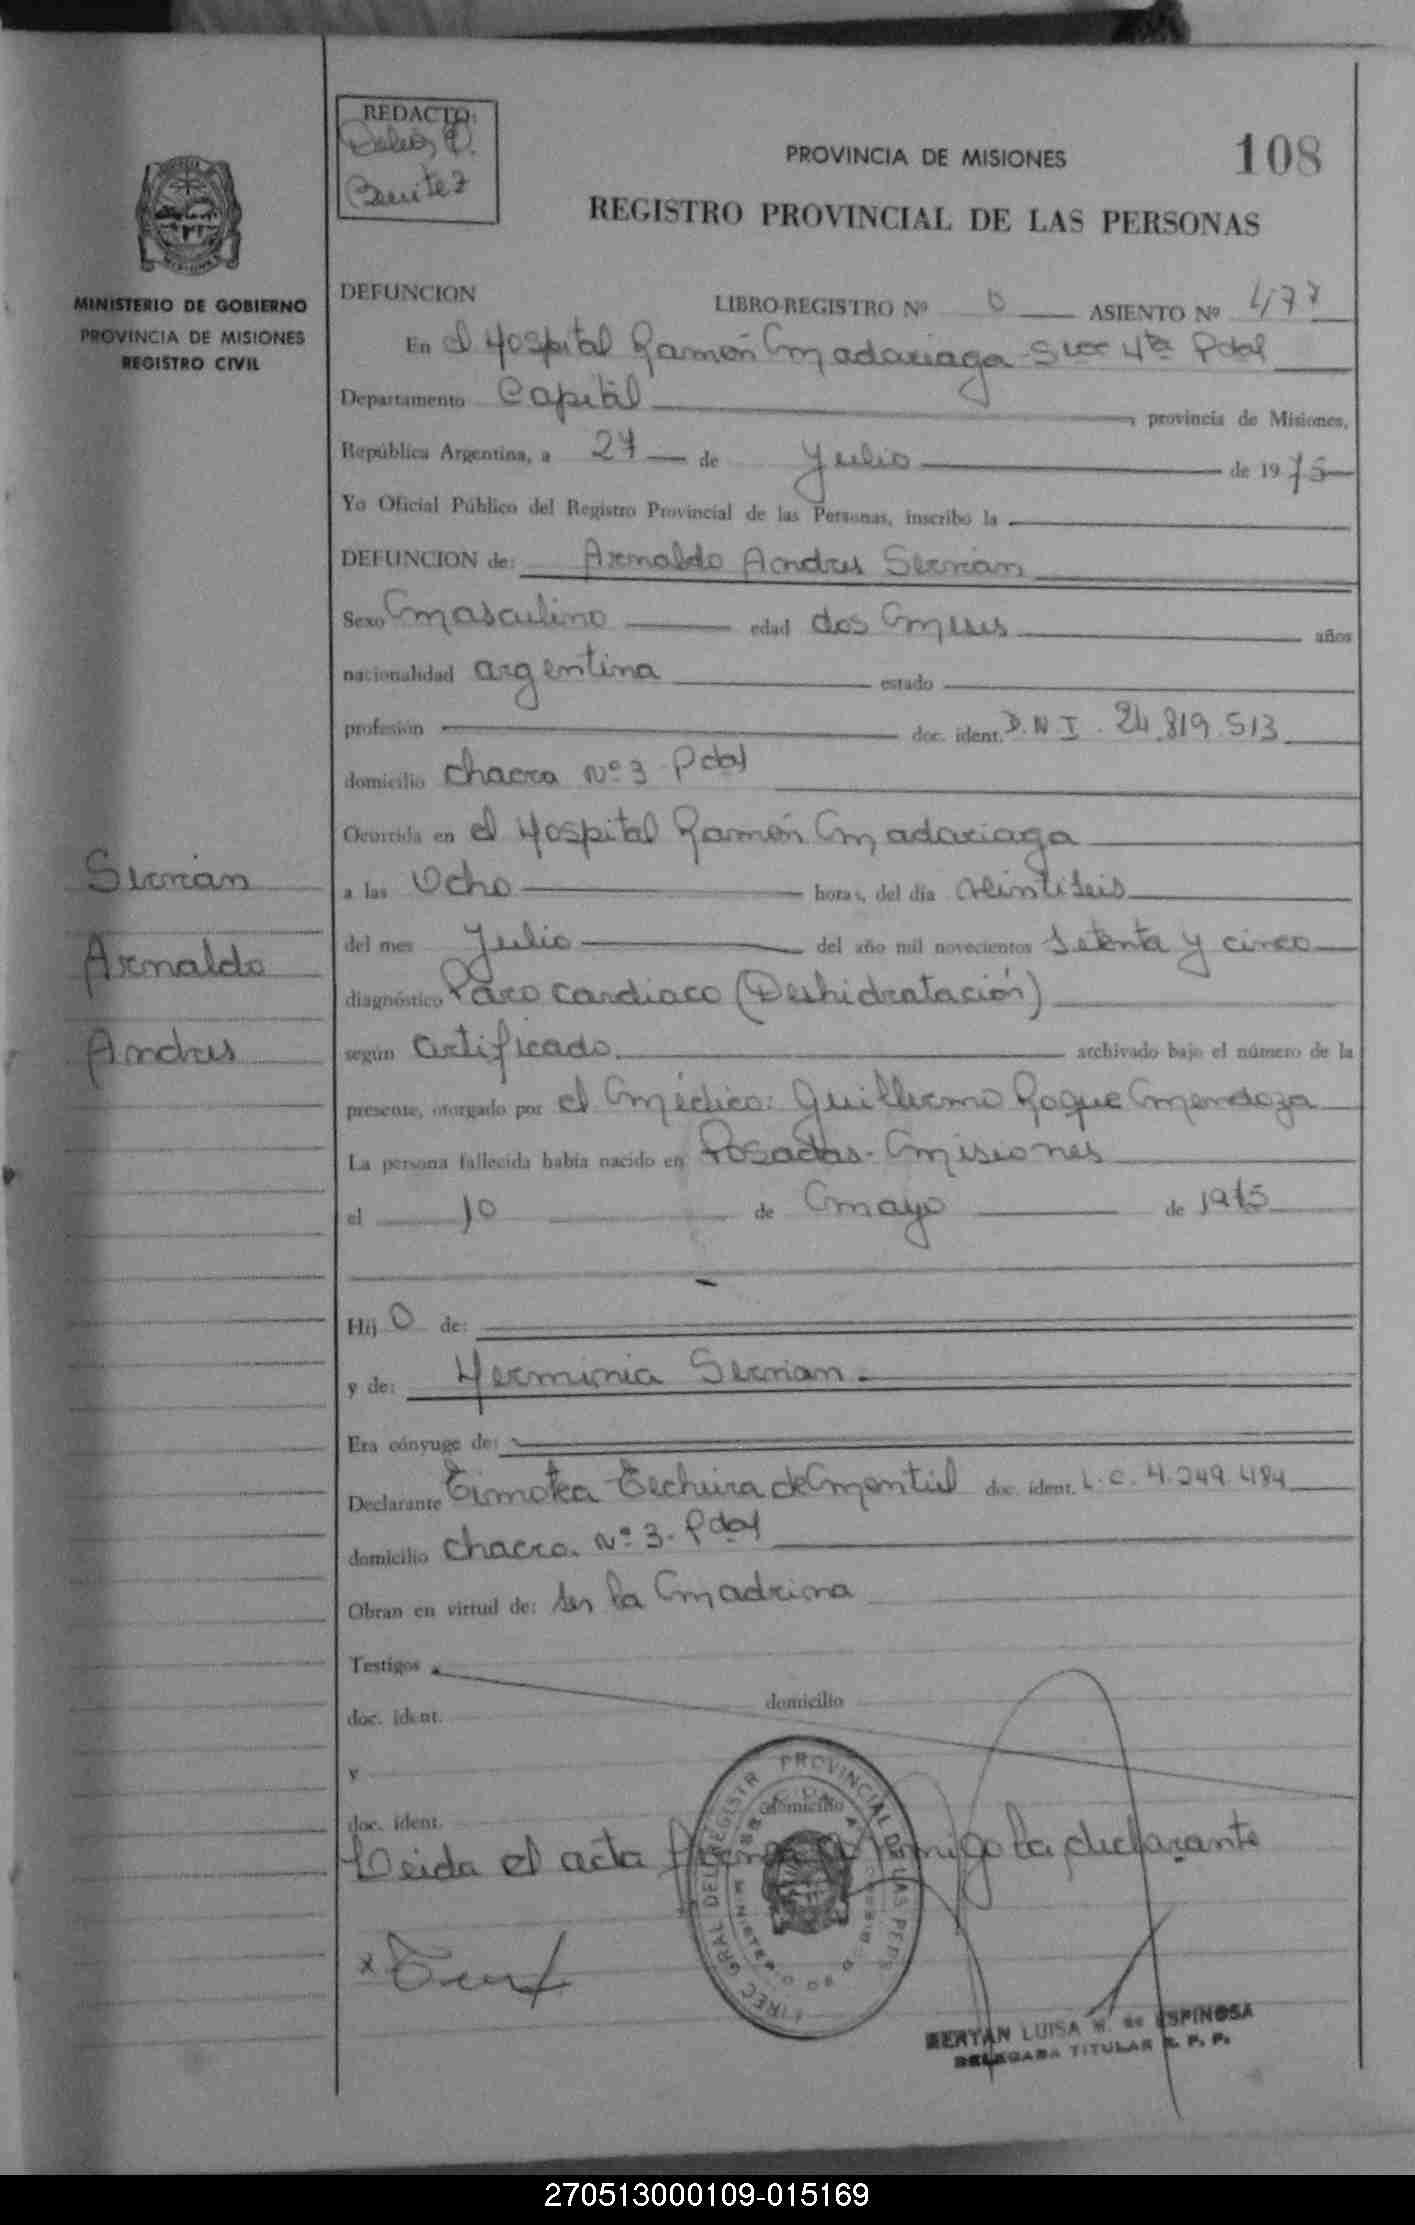 REDACTO:
Benitez
PROVINCIA DE MISIONES
108
REGISTRO PROVINCIAL DE LAS PERSONAS
MINISTERIO DE GOBIERNO
PROVINCIA DE MISIONES
REGISTRO CIVIL
DEFUNCION LIBRO-REGISTRO Nº 6 ASIENTO Nº 477
En el Hospital Ramón Madariaga Succ 4ta Pdas
Departamento Capital, provincia de Misiones,
República Argentina, a 27 de Julio de 1975
Yo Oficial Público del Registro Provincial de las Personas, inscribo la
DEFUNCION de: Arnaldo Andres Serrian
Sexo Masculino edad dos Meses años
nacionalidad argentina estado
profesión doc. ident. D.N.I. 24.819.513
domicilio chacra Nº 3 Pdas
Ocurrida en el Hospital Ramón Madariaga
a las Ocho horas, del día veintiseis
del mes Julio del año mil novecientos setenta y cinco
diagnóstico Paro cardiaco (Deshidratación)
según Certificado archivado bajo el número de la
presente, otorgado por el Médico: Guillermo Roque Mendoza
La persona fallecida había nacido en Posadas - Misiones
el 10 de Mayo de 1975
Hij o de:
y de: Herminia Serrian.
Era cónyuge de:
Declarante de Montiel doc. ident. L.C. 4.249.484
domicilio chacra Nº 3 - Pdas
Obran en virtud de: ser la Madrina
Testigos
doc. ident. domicilio
y
doc. ident. domicilio
Leida el acta firma conmigo la declarante
Serrian
Arnaldo
Andres
PROVINCIAL DE LAS PERS
MINISTERIO DE GOBIERNO
BERTAN LUISA M. de ESPINOSA
DELEGADA TITULAR R. P. P.
270513000109-015169